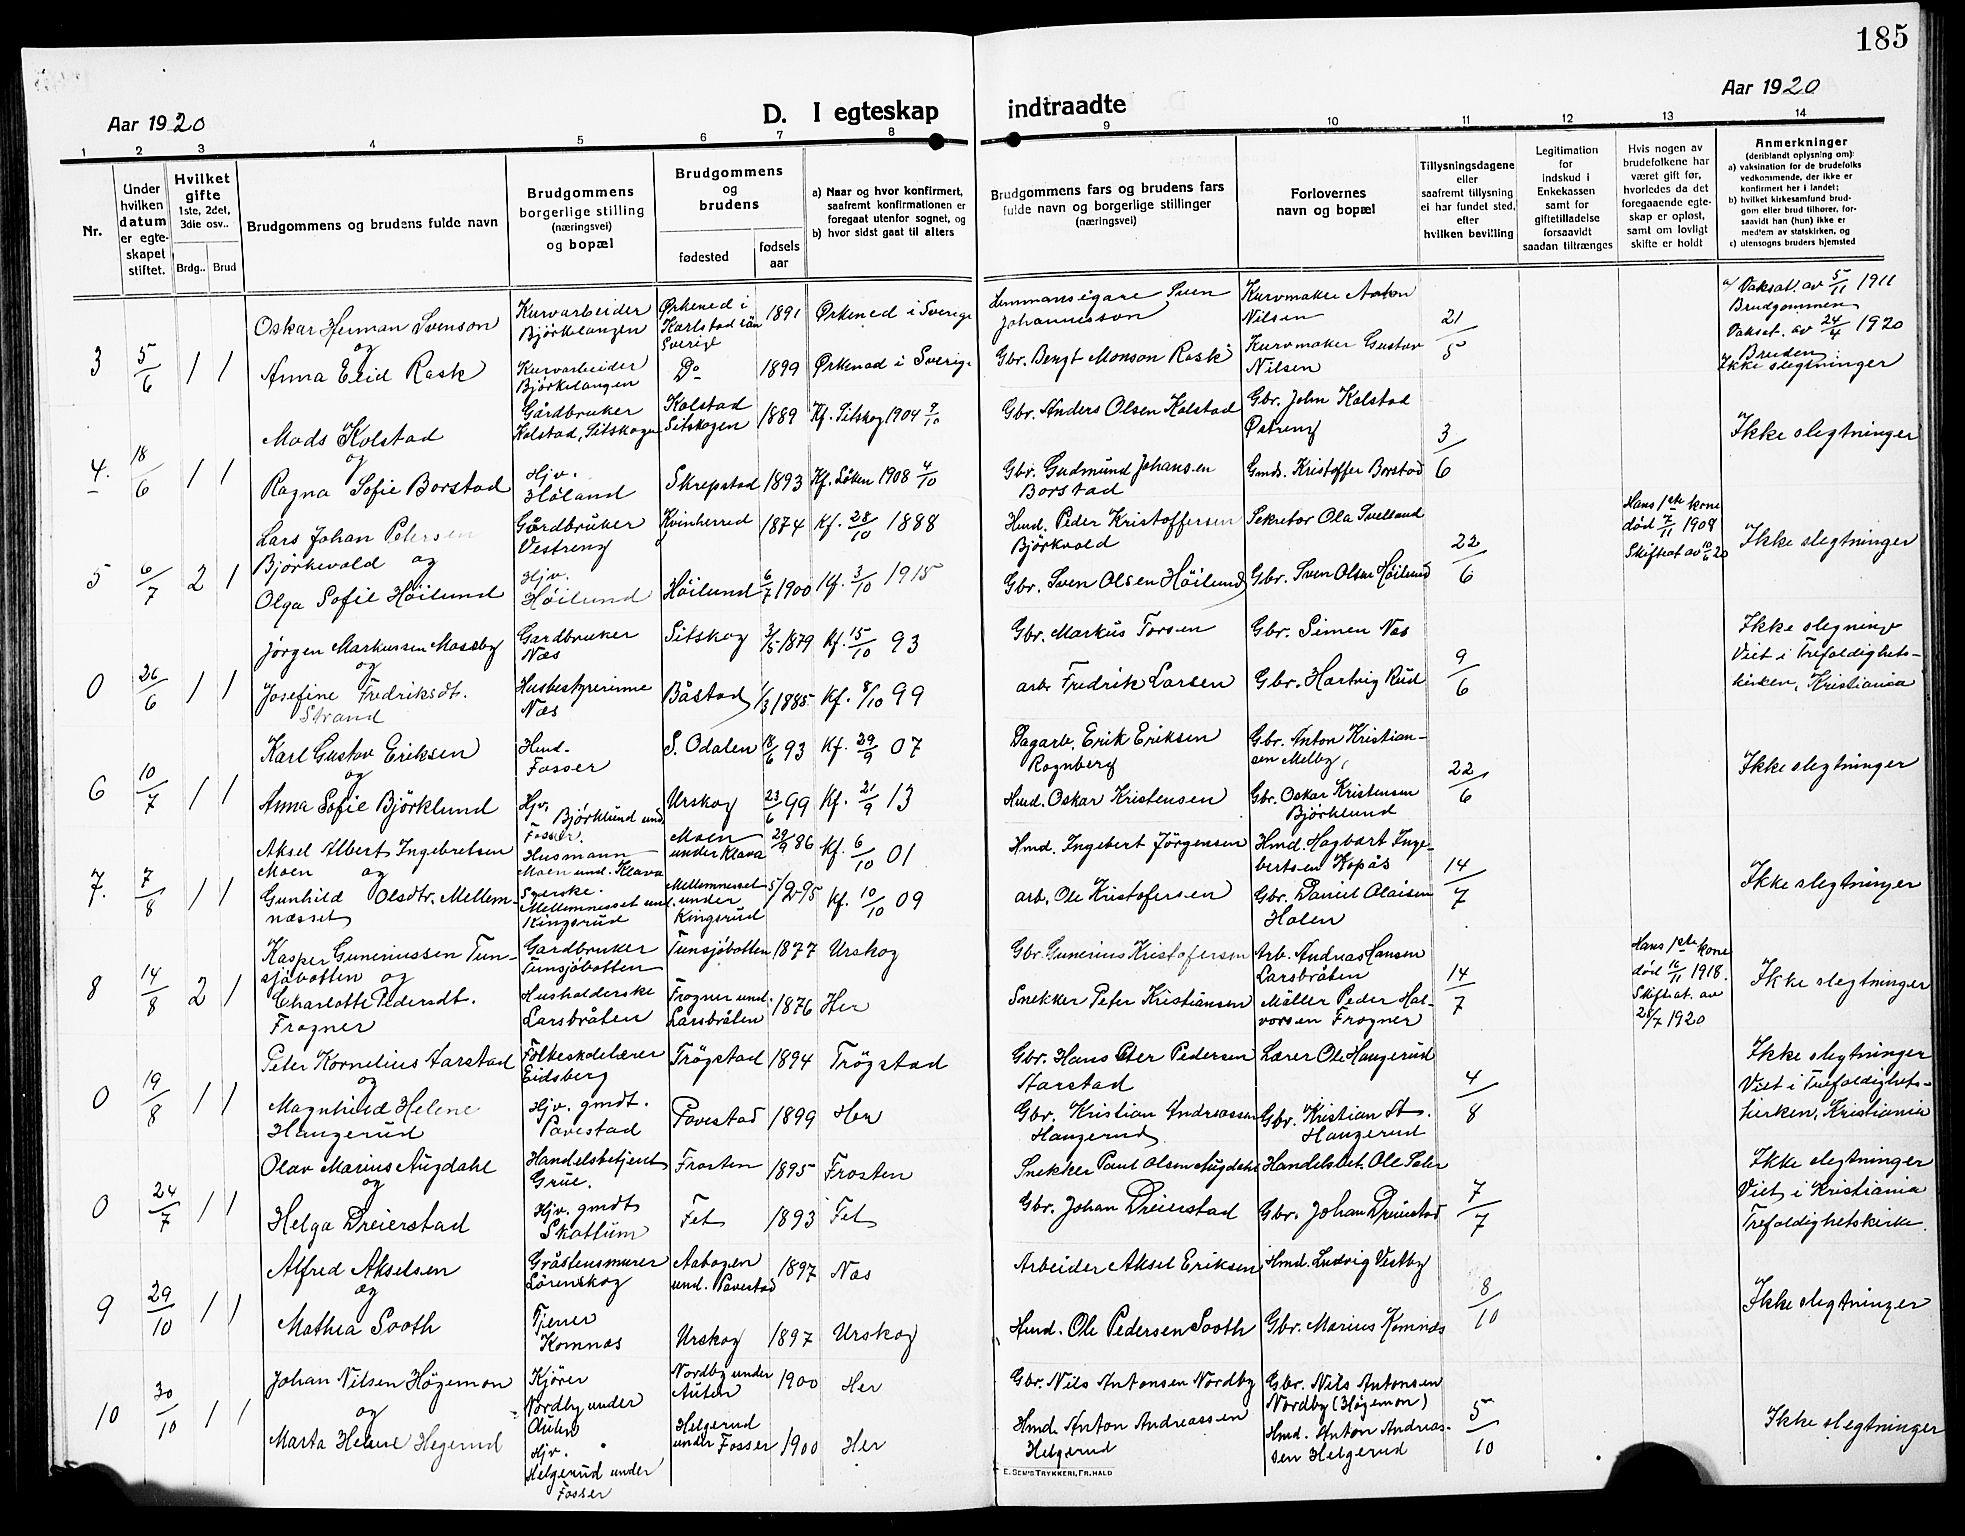 185
Aar 1920
D. I egteskap indtraadte
Aar 1920
1 2 3 4 5 6 7 8 9 10 11 12 13 14
Nr.
Under hvilken datum er egteskapet stiftet.
Hvilket gifte 1ste, 2det, 3die osv..
Brdg.. Brud
Brudgommens og brudens fulde navn
Brudgommens borgerlige stilling (næringsvei) og bopæl
Brudgommens og brudens
fødested
fødselsaar
a) Naar og hvor konfirmert, saafremt konfirmationen er foregaat utenfor sognet, og
b) hvor sidst gaat til alters
Brudgommens fars og brudens fars fulde navn og borgerlige stillinger (næringsvei)
Forlovernes navn og bopæl
Tillysningsdagene eller saafremt tillysning ei har fundet sted, efter hvilken bevilling
Legitimation for indskud i Enkekassen samt for giftetilladelse forsaavidt saadan tiltrænges
Hvis nogen av brudefolkene har været gift før, hvorledes da det foregaaende egteskap er opløst, samt om lovligt skifte er holdt
Anmerkninger (deriblandt oplysning om):
a) vaksination for de brudefolks vedkommende, der ikke er konfirmert her i landet;
b) hvilket kirkesamfund brudgom eller brud tilhører, forsaavidt han (hun) ikke er medlem av statskirken, og
c) utensogns bruders hjemsted
3 5/6 1 1 Oskar Herman Svenson Kurvarbeider Bjørkelangen Ørkened i Karlstad län Sverig 1891 Ørkened i Sverige Hemmansegare Sven Johannesson Kurvmaker Anton Nilsen 21/5 a/ Vaksat. av 5/11 1911 Brudgommen
og
Anna Elid Rask Kurvarbeider Bjørkelangen Do 1899 Ørkened i Sverige Gbr. Bengt Monson Rask Kurvmaker Gustav Nilsen Vaksat. av 24/4 1920 Bruden. Ikke slegtninger
4. 18/6 1 1 Mads Kolstad Gårdbruker Kolstad, Sitskogen Kolstad Sitskogen 1889 Kf. Sitskog 1904 9/10 Gbr. Anders Olsen Kolstad Gbr. John Kolstad Østreng 3/6 Ikke slegtninger
og
Ragna Sofie Borstad Hjv. Høland Skrepstad 1893 Kf. Løken 1908 4/10 Gbr. Gudmund Johansen Borstad Gmd. Kristoffer Borstad
5 6/7 2 1 Lars Johan Petersen Bjørkevold og Gårdbruker Vestreng Kvinherred 1874 Kf. 28/10 1888 Hmd. Peder Kristoffersen Björkvold Sekretær Ola Svelland 22/6 Hans 1ste kone død 7/11 1908 Skifteat av 10/6 20 Ikke slegtninger
Olga Sofie Höilund Hjv. Höilund Höilund 6/7 1900 Kf. 3/10 1915 Gbr. Sven Olsen Höilund Gbr. Sven Olsen Höilund
0 26/6 1 1 Jørgen Markussen Mosseby Gardbruker Næs Sitskog 3/5 1879 Kf. 15/10 93 Gbr. Markus Torsen Gbr. Simen Næs 9/6 Ikke slegninge Viet i Trefoldighetskirken, Kristiania
og
Josefine Fredriksdt. Strand Husbestyrerinne Næs Båstad 1/3 1885 Kf. 8/10 99 arb. Fredrik Larsen Gbr. Hartvig Rud
6 10/7 1 1 Karl Gustav Eriksen Hmd. Fosser S. Odalen 18/6 93 Kf. 29/9 07 Dagarb. Erik Eriksen Rognberg Gbr. Anton Kristiansen Melby, 22/6 Ikke slegtninger
og
Anna Sofie Björklund Hjv. Björklund und Fosser. Urskog 23/6 99 Kf. 21/9 13 Hmd. Oskar Kristensen Gbr. Oskar Kristensen Björklund
7. 7/8 1 1 Aksel Albert Ingebretsen Moen og Husmann Moen und. Klava Moen under Klava 29/9 86 Kf. 6/10 01 Hmd. Ingebert Jørgensen Hmd. Hagbart Ingebertsen Kopås 14/7 Ikke slegtninger
Gunhild Olsdtr. Mellemnæsset Syerske. Mellemnesset und. Kingsrud Mellemnesset under Kingsrud 5/2 95 Kf. 10/10 09 arb. Ole Kristofersen Gbr. Daniel Olaisen Holen
8 14/8 2 1 Kasper Gunerussen Tunsjøbotten og Gardbruker Tunsjøbotten Tunsjøbotten 1877 Urskog Gbr. Gunerius Kristofersen Arb. Andreas Hansen Larsbråten 14/7 Hans 1ste kone død 16/11 1918. Skifteat. av 28/7 1920 Ikke slegtninger
Charlotte Pedersdt. Frogner Husholderske Larsbråten Frogner und. Larsbråten 1876 Her Snekker Peter Kristiansen Møller Peder Halvorsen Frogner
0 19/8 1 1 Peter Kornelius Aarstad Folkeskolelærer Eidsberg Trøgstad 1894 Trøgstad Gbr. Hans Peter Pedersen Aarstad Lærer Ole Haugerud 4/8 Ikke slegtninger Viet i Trefoldighetskirken, Kristiania
og
Magnhild Helene Haugerud Hjv. gmdt. Povestad Povestad 1899 Her Gbr. Kristian Andreassen Haugerud Gbr. Kristian A. Haugerud
0 24/7 1 1 Olav Marius Augdahl Handelsbetjent Grue. Frosten 1895 Frosten Snekker Paul Olsen Augdahl Handelsbet. Ole Sæter 7/7 Ikke slegtninger Viet i Kristiania Trefoldighetskirke.
og
Helga Dreierstad Hjv. gmdt Skattum Fet 1893 Fet Gbr. Johan Dreierstad Gbr. Johan Dreierstad
9 29/10 1 1 Alfred Akselsen Gråstensmurer Lørenskog Aabogen und. Pavestad 1897 Næs Arbeider Aksel Eriksen Hmd. Ludvig Vestby 8/10 Ikke slegtninger
og
Mathea Sooth Tjener Komnæs Urskog 1897 Urskog Hmd. Ole Pedersen Sooth Gbr. Marius Komnæs
10 30/10 1 1 Johan Nilsen Högemon Kjører Nordby under Auten Nordby under Auten 1900 Her Gbr. Nils Antonsen Nordby Gbr. Nils Antonsen Nordby (Högemon) 5/10 Ikke slegtninger
og
Marta Helene Hegerud Hjv. Helgerud under Fosser Helgerud under Fosser 1900 Her Hmd. Anton Andreassen Helgerud Hmd. Anton Andreassen Helgerud
E. SEM'S TRYKKERI, FR.HALD